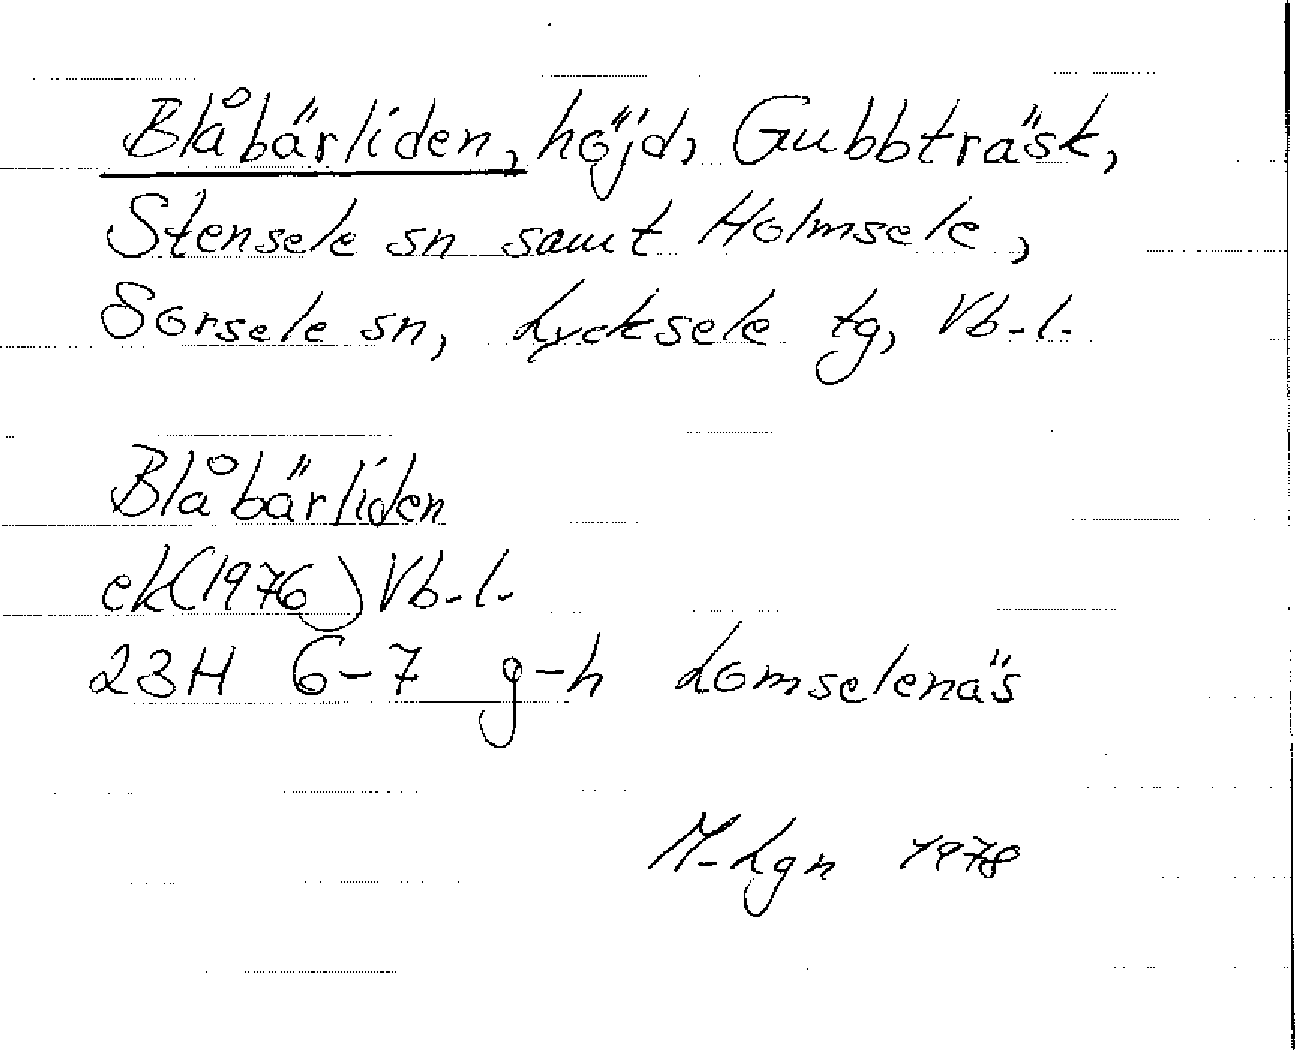 Blåbärliden, höjd, Gubbträsk,
Stensele sn samt Holmsele,
Sorsele sn, Lycksele tg, Vb-l.
Blåbärliden
ek(1976) Vb-l.
23H 6-7 g-h Lomselenäs
M-Lgn 1978